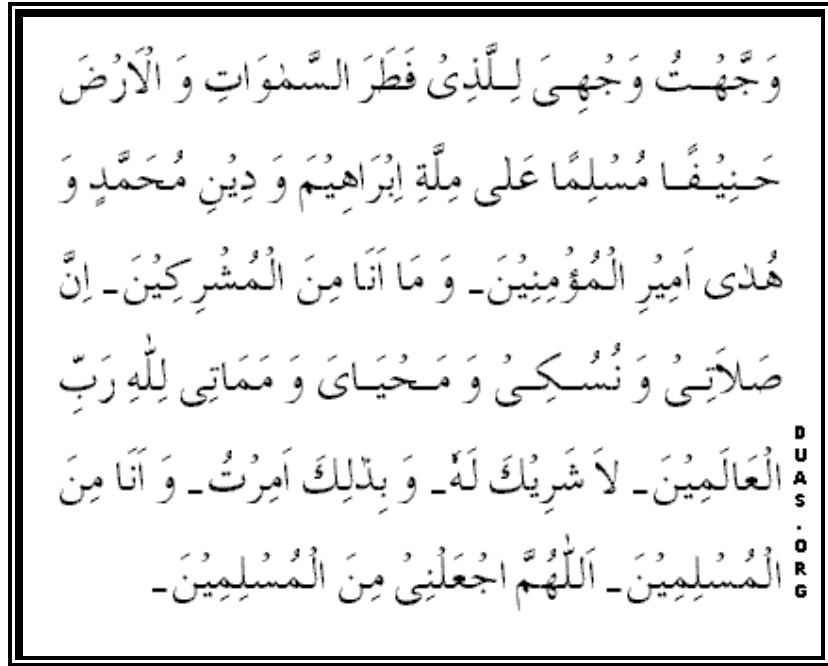 وَجَّهْتُ وَجْهِىَ لِلَّذِىْ فَطَرَ السَّمٰوَاتِ وَ الْاَرْضَ
حَنِيْفًا مُسْلِمًا عَلٰى مِلَّةِ اِبْرَاهِيْمَ وَ دِيْنِ مُحَمَّدٍ وَ
هُدٰى اَمِيْرِ الْمُؤْمِنِيْنَ۔ وَ مَا اَنَا مِنَ الْمُشْرِكِيْنَ۔ اِنَّ
صَلاَتِىْ وَ نُسُكِىْ وَ مَحْيَاىَ وَ مَمَاتِى لِلّٰهِ رَبِّ
الْعَالَمِيْنَ۔ لاَ شَرِيْكَ لَهٗ۔ وَ بِذٰلِكَ اَمِرْتُ۔ وَ اَنَا مِنَ
الْمُسْلِمِيْنَ۔ اَللّٰهُمَّ اجْعَلْنِىْ مِنَ الْمُسْلِمِيْنَ۔
DUAS.ORG